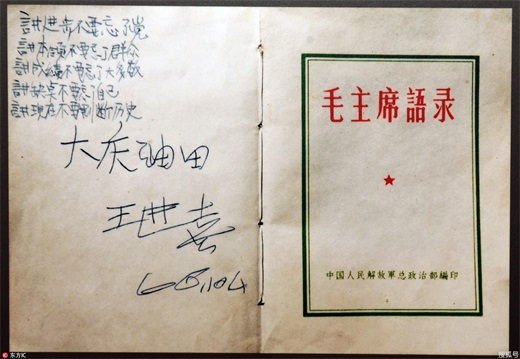 讲进步不要忘了党
讲本领不要忘了群众
讲成绩不要忘了大多数
讲缺点不要忘了自己
讲现在不要割断历史
大庆油田
王进喜
毛主席語录
中国人民解放軍总政治部編印
东方IC
搜狐号